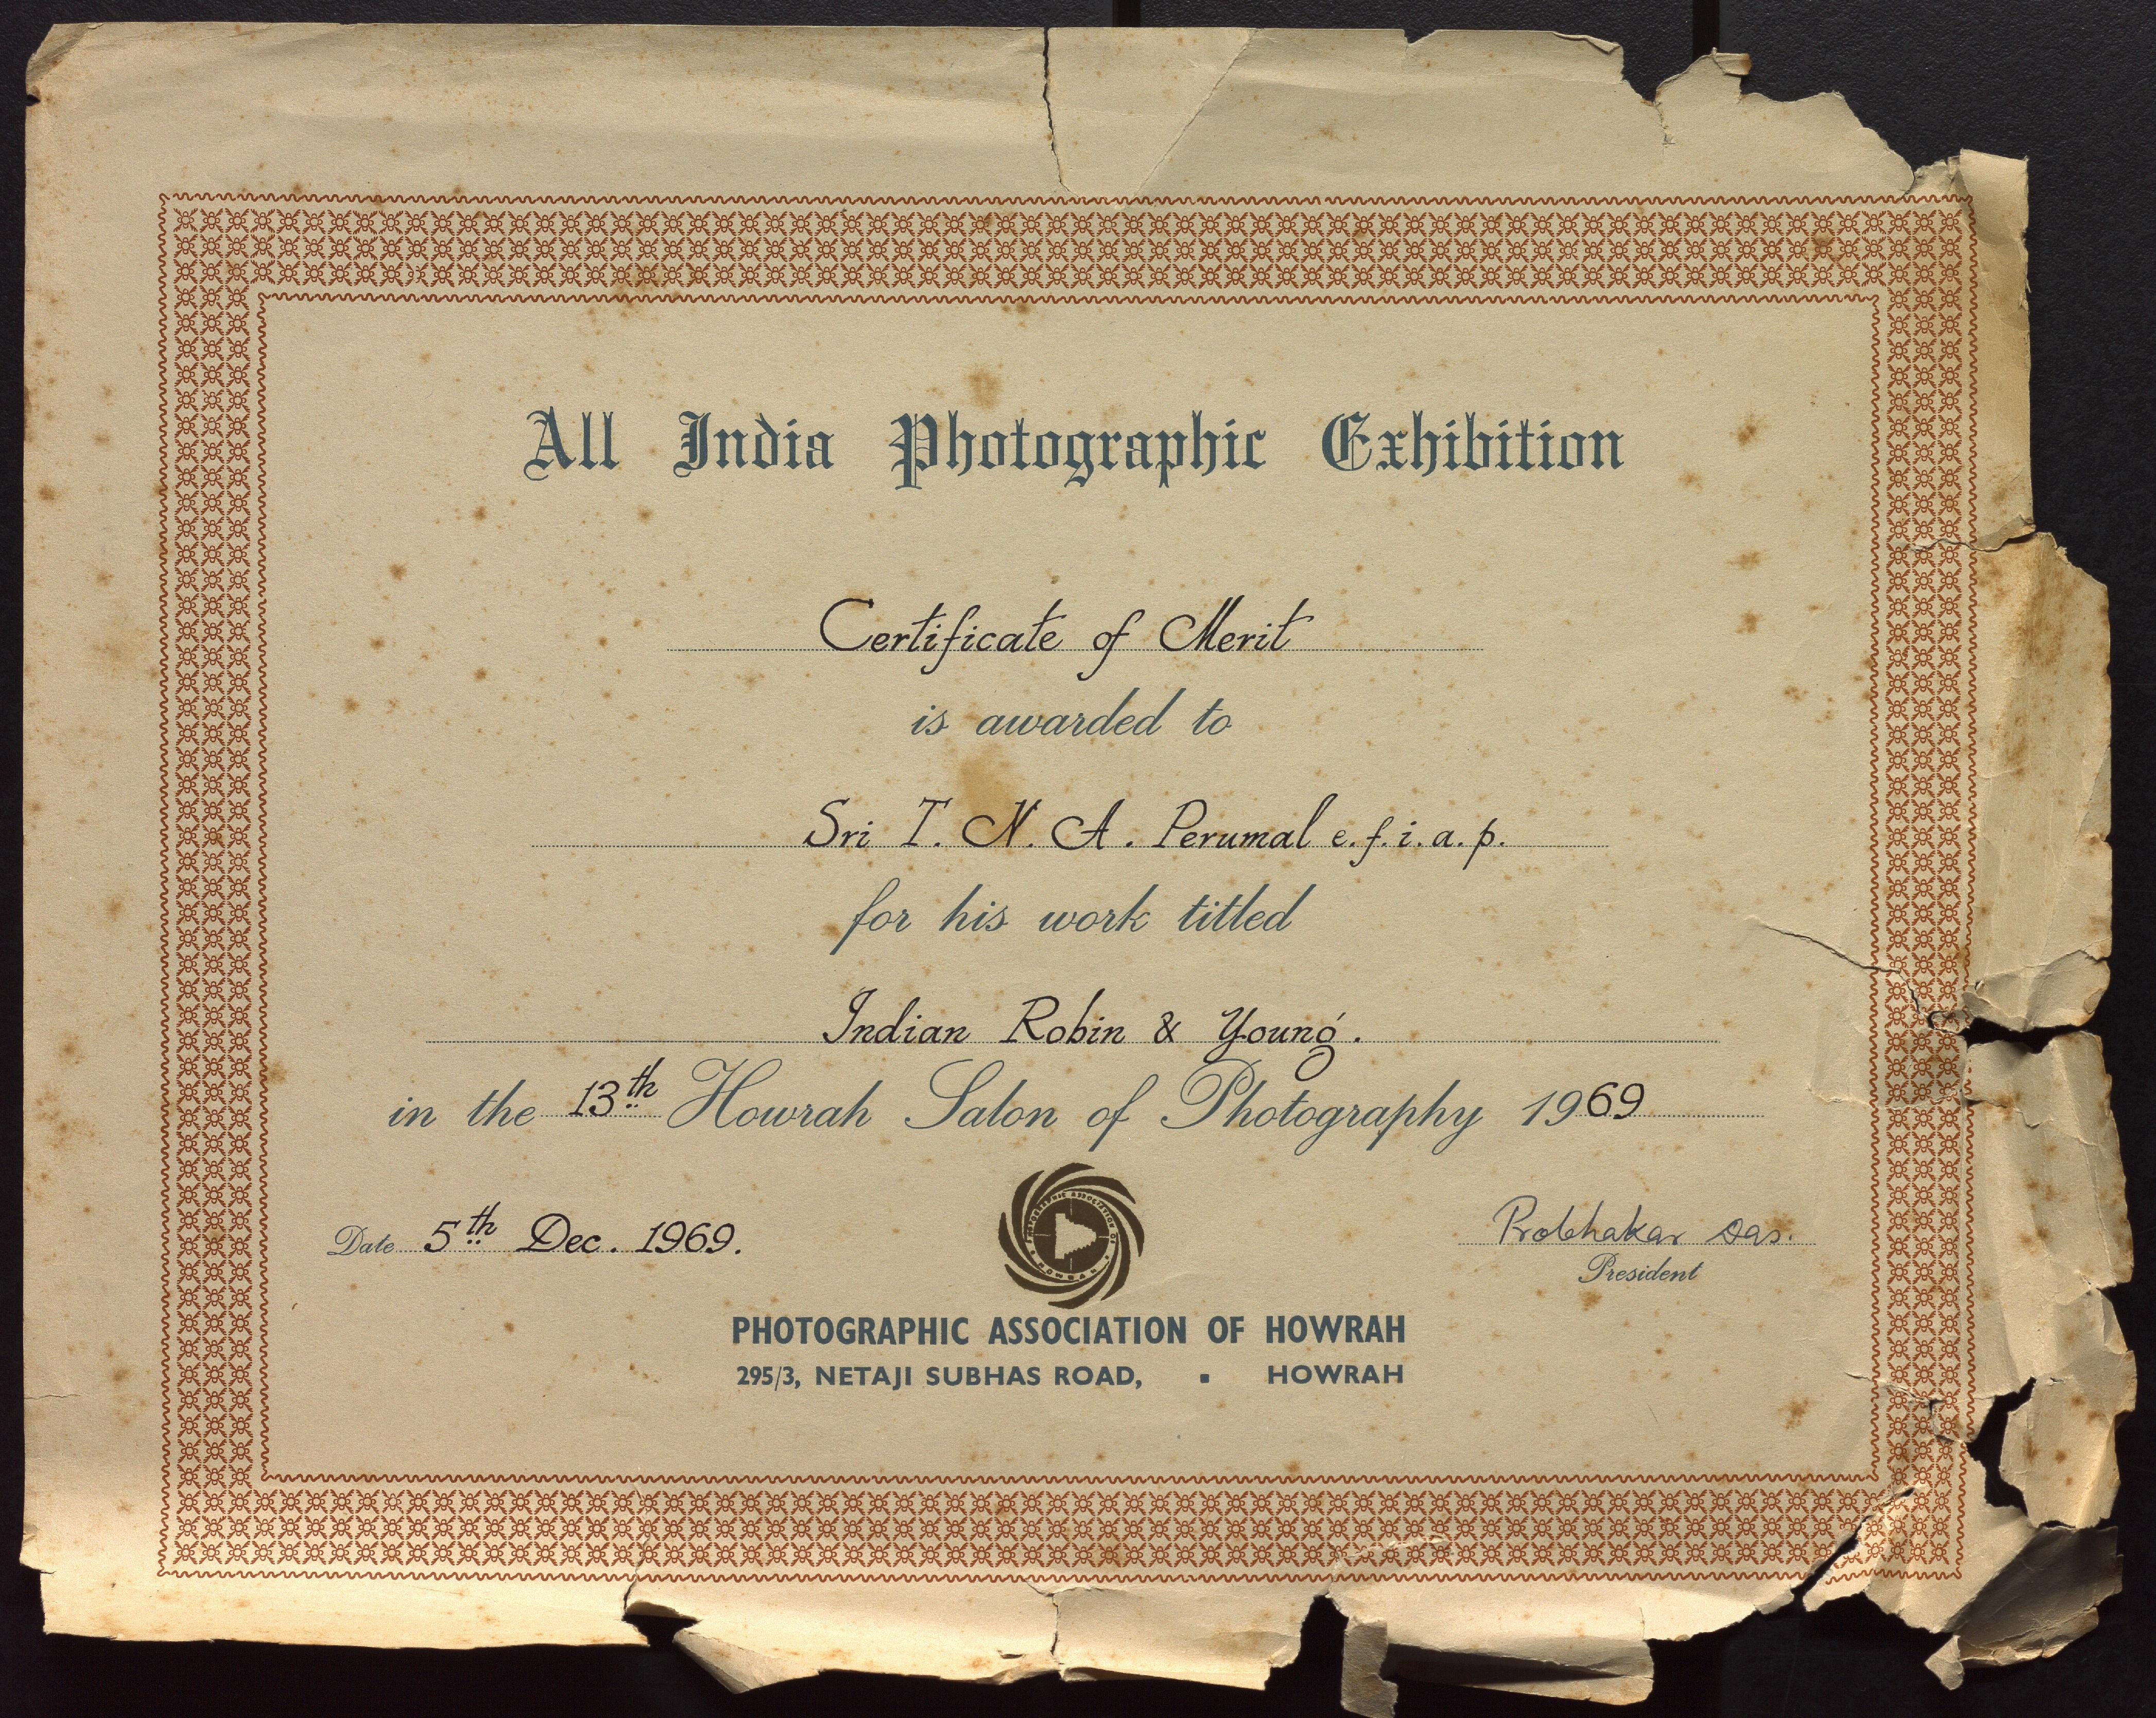 All India Photographic Exhibition
Certificate of Merit
is awarded to
Sri T. N. A. Perumal e.f.i.a.p.
for his work titled
Indian Robin & Young.
in the 13th Howrah Salon of Photography 1969
Date 5th Dec. 1969.
Probhakar Das.
President
PHOTOGRAPHIC ASSOCIATION OF HOWRAH
PHOTOGRAPHIC ASSOCIATION OF HOWRAH
295/3, NETAJI SUBHAS ROAD, ▪ HOWRAH